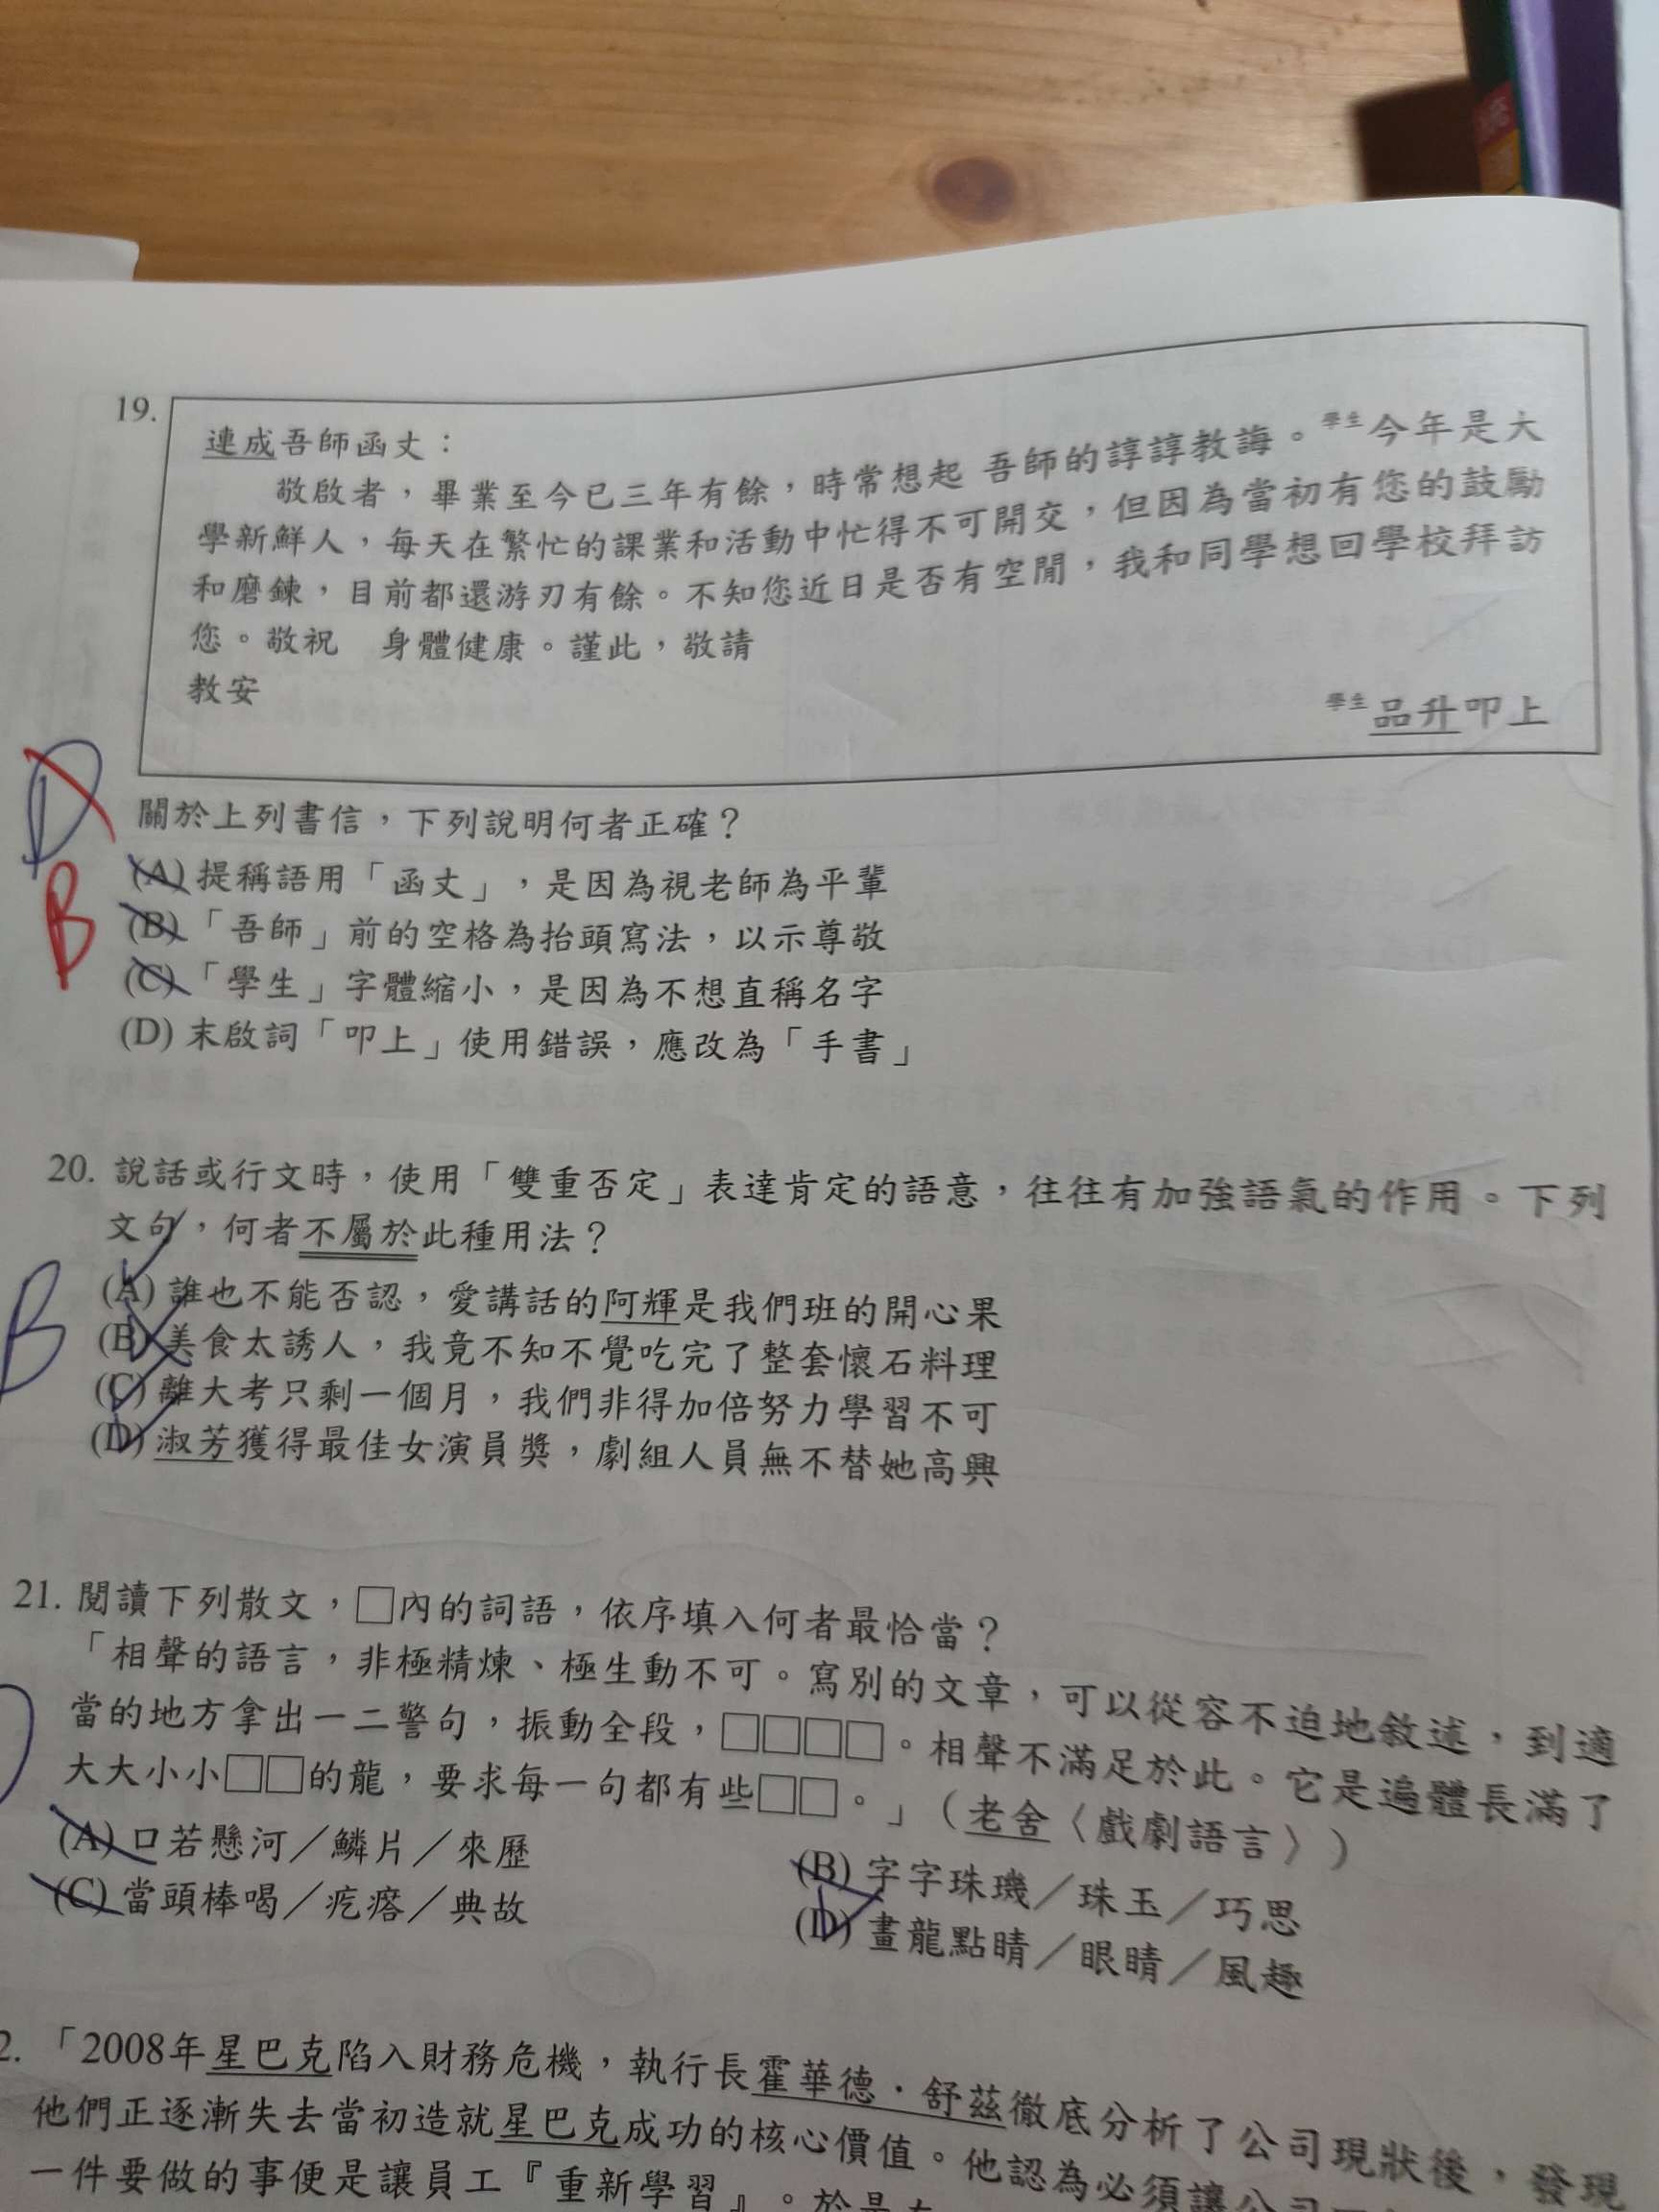 19.
連成吾師函丈：
敬啟者，畢業至今已三年有餘，時常想起 吾師的諄諄教誨。學生今年是大
學新鮮人，每天在繁忙的課業和活動中忙得不可開交，但因為當初有您的鼓勵
和磨鍊，目前都還游刃有餘。不知您近日是否有空閒，我和同學想回學校拜訪
您。敬祝　身體健康。謹此，敬請
教安
學生品升叩上
D
關於上列書信，下列說明何者正確？
B
(A) 提稱語用「函丈」，是因為視老師為平輩
(B) 「吾師」前的空格為抬頭寫法，以示尊敬
(C) 「學生」字體縮小，是因為不想直稱名字
(D) 末啟詞「叩上」使用錯誤，應改為「手書」
20. 說話或行文時，使用「雙重否定」表達肯定的語意，往往有加強語氣的作用。下列
文句，何者不屬於此種用法？
B
(A) 誰也不能否認，愛講話的阿輝是我們班的開心果
(B) 美食太誘人，我竟不知不覺吃完了整套懷石料理
(C) 離大考只剩一個月，我們非得加倍努力學習不可
(D) 淑芳獲得最佳女演員獎，劇組人員無不替她高興
21. 閱讀下列散文，□內的詞語，依序填入何者最恰當？
「相聲的語言，非極精煉、極生動不可。寫別的文章，可以從容不迫地敘述，到適
當的地方拿出一二警句，振動全段，□□□□。相聲不滿足於此。它是遍體長滿了
大大小小□□的龍，要求每一句都有些□□。」（老舍〈戲劇語言〉）
(A) 口若懸河／鱗片／來歷
(B) 字字珠璣／珠玉／巧思
(C) 當頭棒喝／疙瘩／典故
(D) 畫龍點睛／眼睛／風趣
2. 「2008年星巴克陷入財務危機，執行長霍華德．舒茲徹底分析了公司現狀後，發現
他們正逐漸失去當初造就星巴克成功的核心價值。他認為必須讓公司
一件要做的事便是讓員工『重新學習』。於是